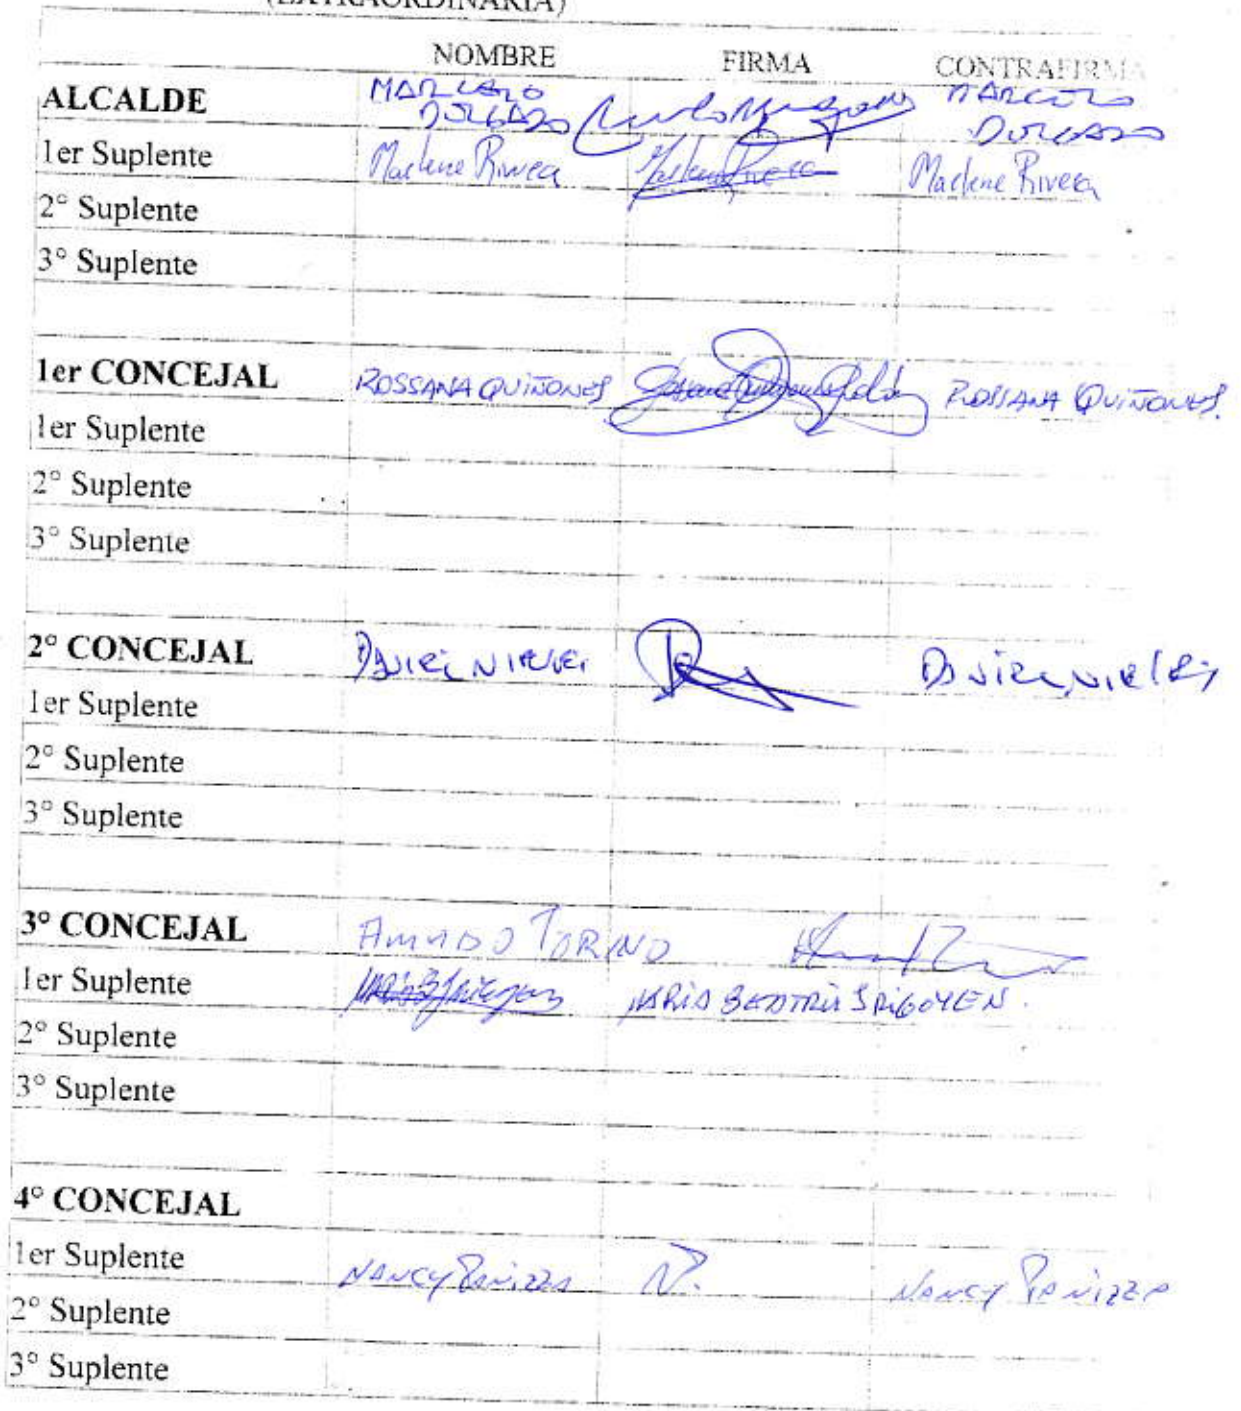 (EXTRAORDINARIA)
NOMBRE FIRMA CONTRAFIRMA
ALCALDE MARCELO DELGADO MARCELO DELGADO
1er Suplente Marlene Rivera Marlene Rivera Marlene Rivera
2° Suplente
3° Suplente
1er CONCEJAL ROSSANA QUIÑONES ROSSANA QUIÑONES.
1er Suplente
2° Suplente
3° Suplente
2° CONCEJAL DANIEL DANIEL
1er Suplente
2° Suplente
3° Suplente
3° CONCEJAL AMADO TORINO
1er Suplente MARIA BEATRIZ IRIGOYEN.
2° Suplente
3° Suplente
4° CONCEJAL
1er Suplente NANCY PANIZZA N. NANCY PANIZZA
2° Suplente
3° Suplente